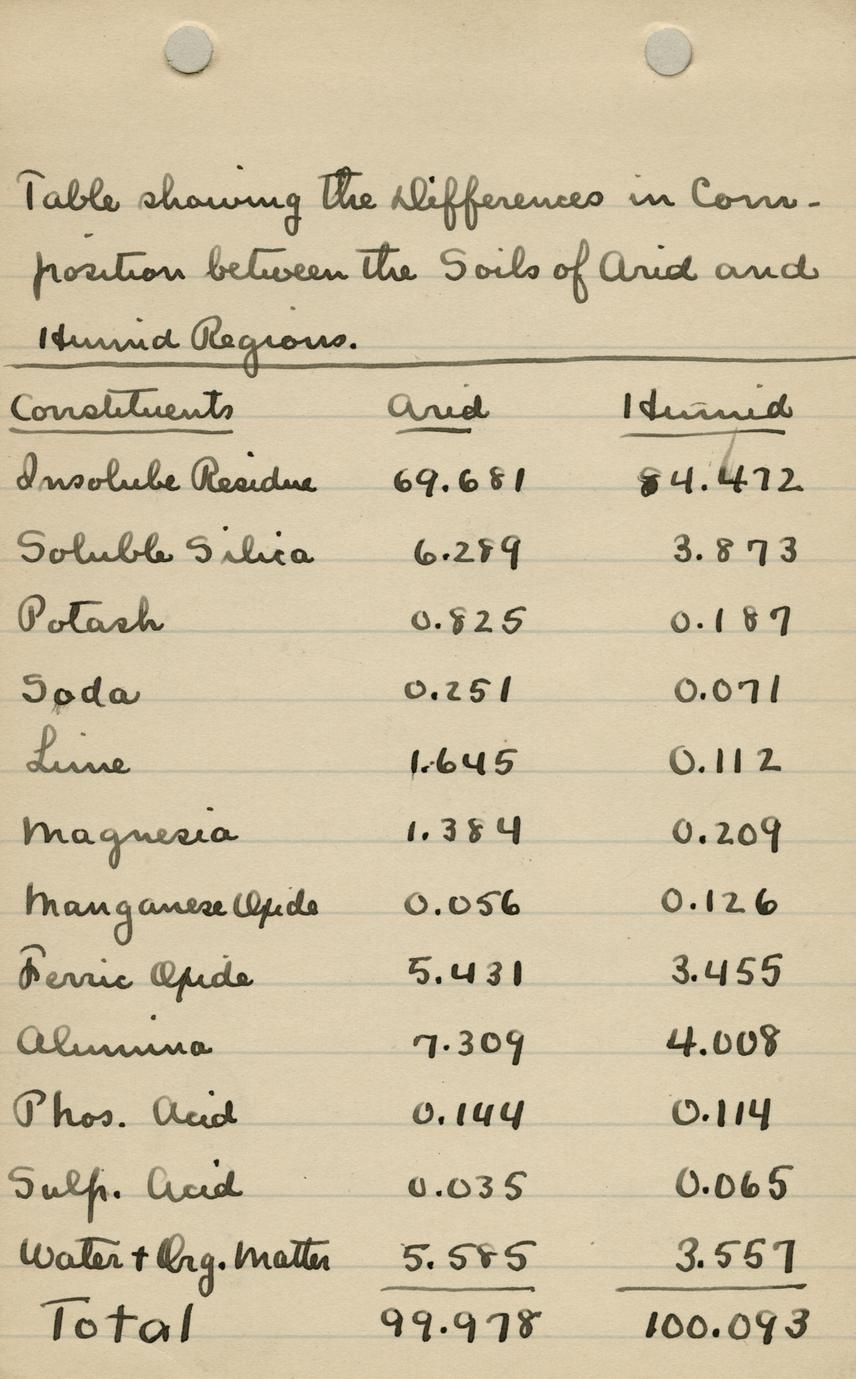 Table showing the Differences in Com-
position between the Soils of Arid and
Humid Regions.
Constituents Arid Humid
Insolube Residue 69.681 84.472
Soluble Silica 6.289 3.873
Potash 0.825 0.187
Soda 0.251 0.071
Lime 1.645 0.112
Magnesia 1.384 0.209
Manganese Oxide 0.056 0.126
Ferric Oxide 5.431 3.455
Alumina 7.309 4.008
Phos. Acid 0.144 0.114
Sulp. Acid 0.035 0.065
Water + Org. Matter 5.585 3.557
Total 99.978 100.093